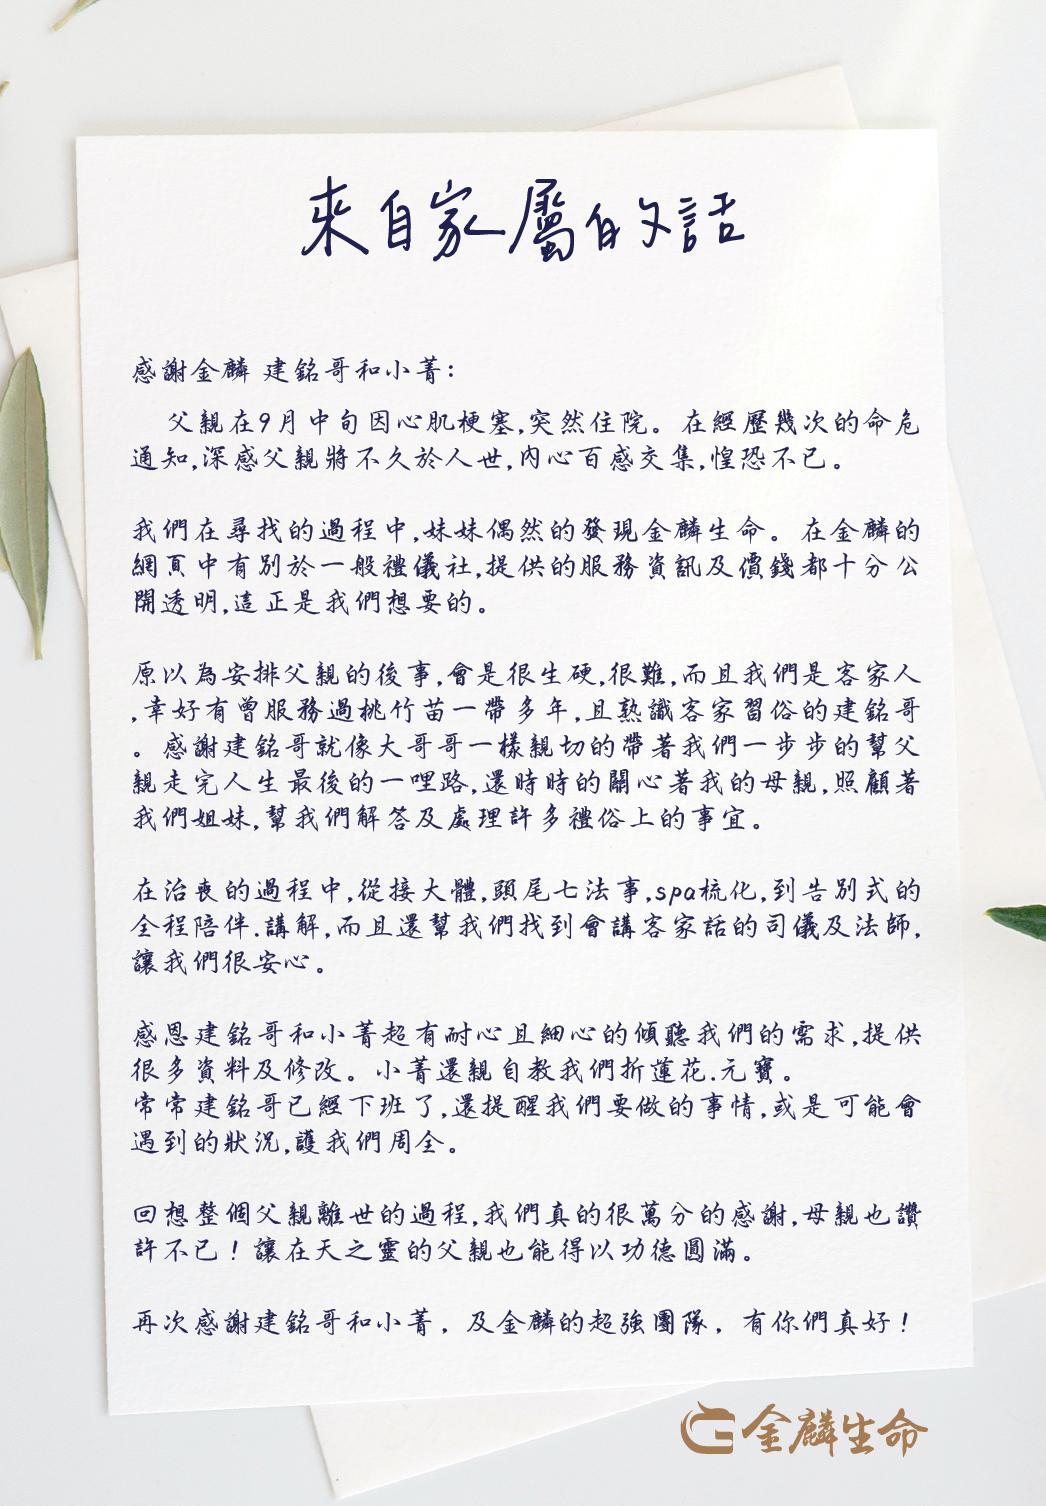 來自家屬的話
感謝金麟 建銘哥和小菁:
父親在9月中旬因心肌梗塞,突然住院。在經歷幾次的命危
通知,深感父親將不久於人世,內心百感交集,惶恐不已。
我們在尋找的過程中,妹妹偶然的發現金麟生命。在金麟的
網頁中有別於一般禮儀社,提供的服務資訊及價錢都十分公
開透明,這正是我們想要的。
原以為安排父親的後事,會是很生硬,很難,而且我們是客家人
,幸好有曾服務過桃竹苗一帶多年,且熟識客家習俗的建銘哥
。感謝建銘哥就像大哥哥一樣親切的帶著我們一步步的幫父
親走完人生最後的一哩路,還時時的關心著我的母親,照顧著
我們姐妹,幫我們解答及處理許多禮俗上的事宜。
在治喪的過程中,從接大體,頭尾七法事,spa梳化,到告別式的
全程陪伴.講解,而且還幫我們找到會講客家話的司儀及法師,
讓我們很安心。
感恩建銘哥和小菁超有耐心且細心的傾聽我們的需求,提供
很多資料及修改。小菁還親自教我們折蓮花.元寶。
常常建銘哥已經下班了,還提醒我們要做的事情,或是可能會
遇到的狀況,護我們周全。
回想整個父親離世的過程,我們真的很萬分的感謝,母親也讚
許不已！讓在天之靈的父親也能得以功德圓滿。
再次感謝建銘哥和小菁，及金麟的超強團隊，有你們真好！
金麟生命